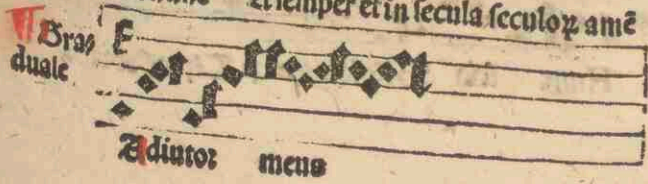 et semper et in secula seculoꝝ amē
Gra⸗
duale
Adiutor meus